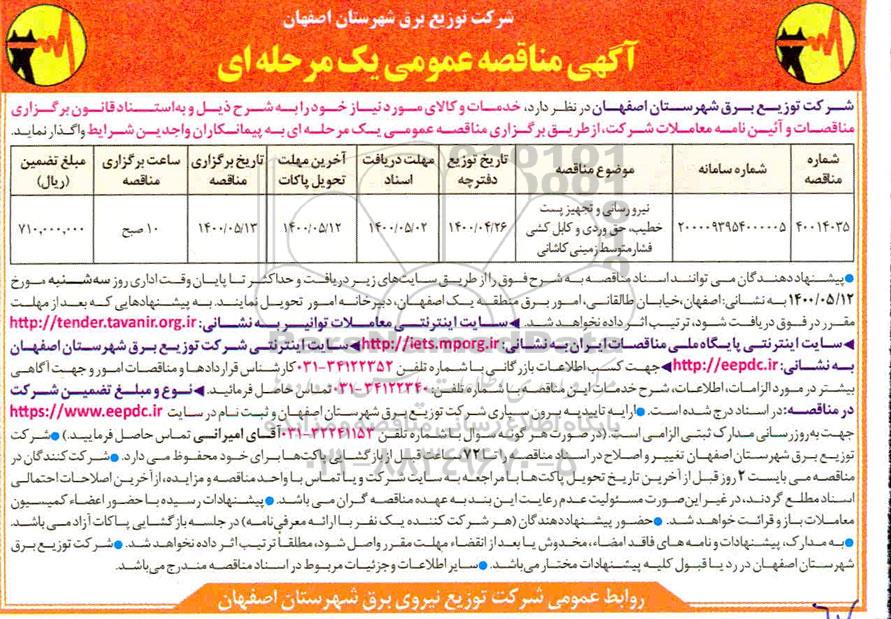 شرکت توزیع برق شهرستان اصفهان
آگهی مناقصه عمومی یک مرحله ای
شرکت توزیع برق شهرستان اصفهان در نظر دارد، خدمات و کالای مورد نیاز خود را به شرح ذیل و به استناد قانون برگزاری
مناقصات و آئین نامه معاملات شرکت، از طریق برگزاری مناقصه عمومی یک مرحله ای به پیمانکاران واجدین شرایط واگذار نماید.
شماره مناقصه | شماره سامانه | موضوع مناقصه | تاریخ توزیع دفترچه | مهلت دریافت اسناد | آخرین مهلت تحویل پاکات | تاریخ برگزاری مناقصه | ساعت برگزاری مناقصه | مبلغ تضمین (ریال)
۴۰۰۱۴۰۳۵ | ۲۰۰۰۰۹۳۹۵۴۰۰۰۰۰۵ | نیرو رسانی و تجهیز پست خطیب، حق وردی و کابل کشی فشار متوسط زمینی کاشانی | ۱۴۰۰/۰۴/۲۶ | ۱۴۰۰/۰۵/۰۲ | ۱۴۰۰/۰۵/۱۲ | ۱۴۰۰/۰۵/۱۳ | ۱۰ صبح | ۷۱۰,۰۰۰,۰۰۰
●پیشنهاد دهندگان می توانند اسناد مناقصه به شرح فوق را از طریق سایت‌های زیر دریافت و حداکثر تا پایان وقت اداری روز سه‌شنبه مورخ
۱۴۰۰/۰۵/۱۲ به نشانی: اصفهان،خیابان طالقانی، امور برق منطقه یک اصفهان، دبیرخانه امور تحویل نمایند. به پیشنهادهایی که بعد از مهلت
مقرر در فوق دریافت شود، ترتیب اثر داده نخواهد شد. ◄سایت اینترنتی معاملات توانیر به نشانی: http://tender.tavanir.org.ir
◄سایت اینترنتی پایگاه ملی مناقصات ایران به نشانی: http://iets.mporg.ir ◄سایت اینترنتی شرکت توزیع برق شهرستان اصفهان
به نشانی: http://eepdc.ir ◄جهت کسب اطلاعات بازرگانی با شماره تلفن ۳۴۱۲۲۳۵۲-۰۳۱ کارشناس قراردادها و مناقصات امور و جهت آگاهی
بیشتر در مورد الزامات، اطلاعات، شرح خدمات این مناقصه با شماره تلفن: ۳۴۱۲۲۳۴۰-۰۳۱ تماس حاصل فرمائید. ◄نوع و مبلغ تضمین شرکت
در مناقصه: در اسناد درج شده است. ●ارایه تاییدیه برون سپاری شرکت توزیع برق شهرستان اصفهان و ثبت نام در سایت https://www.eepdc.ir
جهت به روز رسانی مدارک ثبتی الزامی است. (در صورت هر گونه سوال با شماره تلفن ۳۲۲۴۱۱۵۳-۰۳۱ آقای امیرانی تماس حاصل فرمایید.) ●شرکت
توزیع برق شهرستان اصفهان تغییر و اصلاح در اسناد مناقصه را تا ۷۲ ساعت قبل از بازگشایی پاکت‌ها برای خود محفوظ می دارد. ●شرکت کنندگان در
مناقصه می بایست ۲ روز قبل از آخرین تاریخ تحویل پاکت‌ها با مراجعه به سایت شرکت و یا تماس با واحد مناقصه و مزایده، از آخرین اصلاحات احتمالی
اسناد مطلع گردند، در غیر این صورت مسئولیت عدم رعایت این بند به عهده مناقصه گران می باشد. ●پیشنهادات رسیده با حضور اعضاء کمیسیون
معاملات باز و قرائت خواهد شد. ●حضور پیشنهاد دهندگان (هر شرکت کننده یک نفر با ارائه معرفی نامه) در جلسه بازگشایی پاکات آزاد می باشد.
●به مدارک، پیشنهادات و نامه های فاقد امضاء، مخدوش یا بعد از انقضاء مهلت مقرر واصل شود، مطلقاً ترتیب اثر داده نخواهد شد. ●شرکت توزیع برق
شهرستان اصفهان در رد یا قبول کلیه پیشنهادات مختار می‌باشد. ●سایر اطلاعات و جزئیات مربوط در اسناد مناقصه مندرج می‌باشد.
روابط عمومی شرکت توزیع نیروی برق شهرستان اصفهان